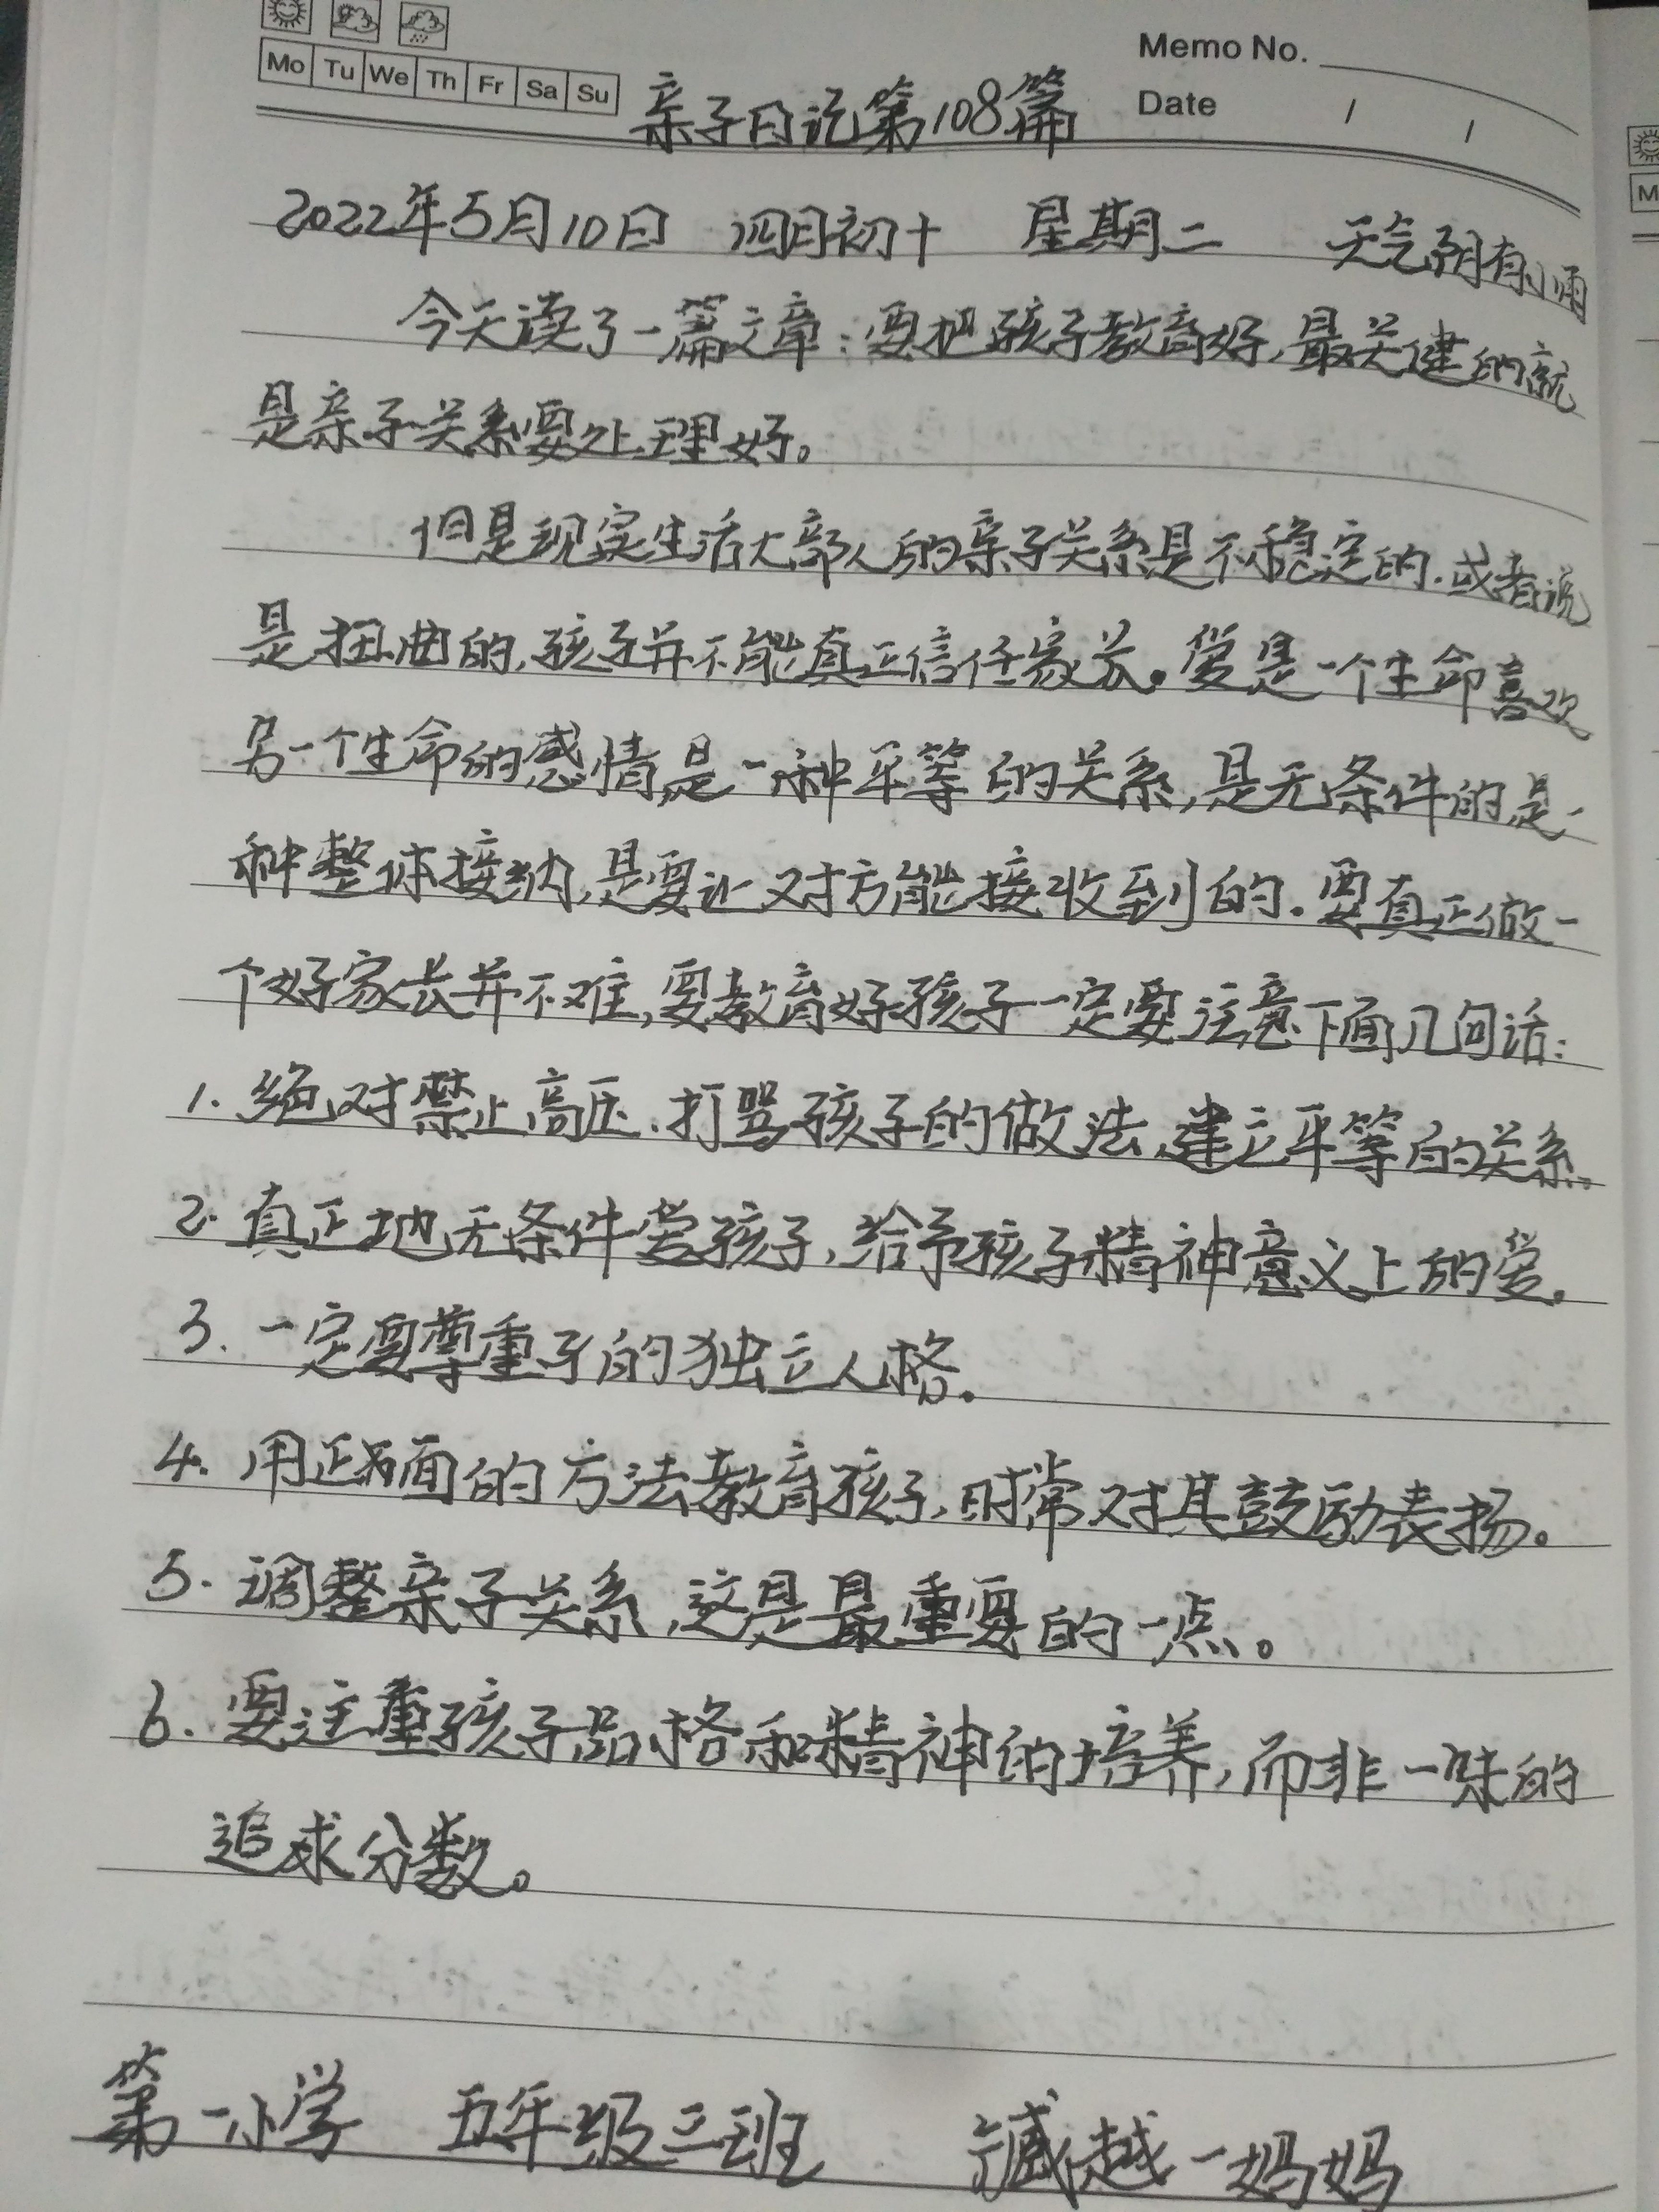 Mo Tu We Th Fr Sa Su
Memo No.
Date / /
亲子日记第108篇
2022年5月10日 四月初十 星期二 天气阴有小雨
今天读了一篇文章：要把孩子教育好,最关健的就
是亲子关系要处理好。
但是现实生活大部人的亲子关系是不稳定的.或者说
是扭曲的,孩子并不能真正信任家长。爱是一个生命喜欢
另一个生命的感情,是一种平等的关系,是无条件的,是一
种整体接纳,是要让对方能接收到的.要真正做一
个好家长并不难,要教育好孩子一定要注意下面几句话:
1.绝对禁止高压、打骂孩子的做法,建立平等的关系。
2.真正地无条件爱孩子,给予孩子精神意义上的爱。
3.一定要尊重子的独立人格.
4.用正面的方法教育孩子,时常对其鼓励表扬。
5.调整亲子关系,这是最重要的一点。
6.要注重孩子品格和精神的培养,而非一味的
追求分数。
第一小学 五年级三班 臧越一妈妈
M